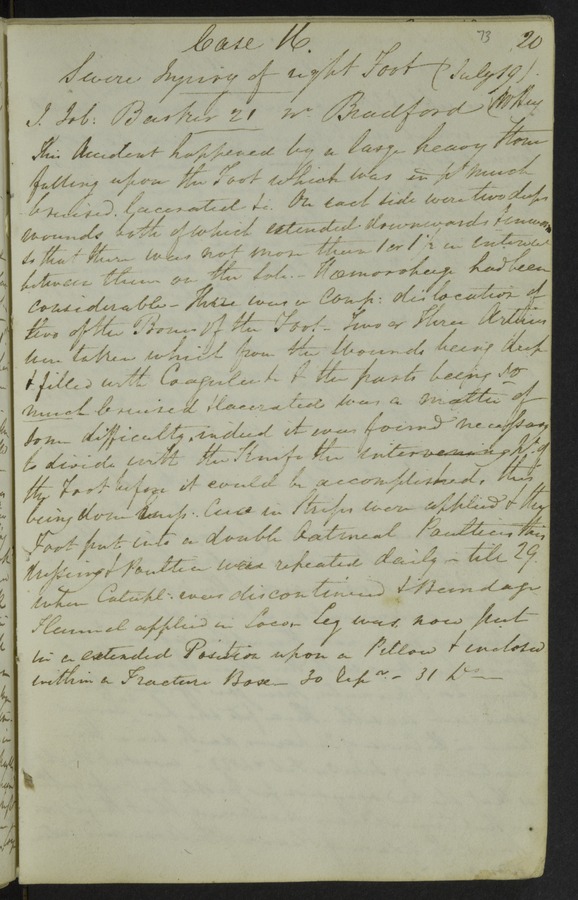 73 20
Case 16.
Severe Injury of right Foot (July 19).
J. Job: Barker 21 nr Bradford (Mr Hey
This Accident happened by a large heavy Stone
falling upon the Foot which was in pt much
bruised, lacerated &c. On each side were two deep
wounds both of which extended downwards &
so that there was not more than 1 or 1 1/2 in interval
between them on the Sole. - Hæmorrhage had been
considerable - There was a comp: dislocation of
two of the Bones of the Foot - Two or three Arteries
were taken which from the Wounds being deep
& filled with Coagulum & the parts being so
much bruised & lacerated was a matter of
some difficulty, indeed it was found necessary
to divide with the Knife the intervening pt of
the Foot before it could be accomplished, this
being done in Strips were applied & the
Foot put into a double Oatmeal Poultice this
dressing & Poultice were repeated daily - till 29
when Catapl: was discontinued & Bandage
Flannel applied in Loco. Leg was now put
in a extended Position upon a Pillow & inclosed
within a Fracture Box - 30 Repr - 31 Do